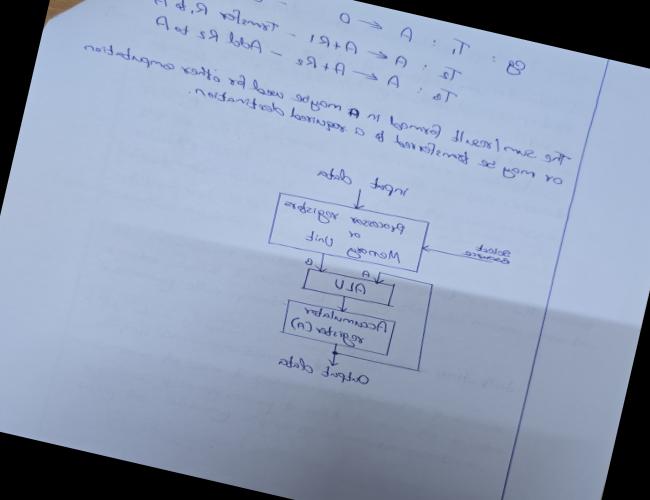 Eg: T1 : A ← 0
T2 : A ← A+R1 - Transfer R1 to A
T3 : A ← A+R2 - Add R2 to A
The sum/result formed in A maybe used for other computation
or may be transferred to a required destination.
input data
Processor registers
or
Memory Unit
Select
source
B A
ALU
Accumulator
register (A)
Output data